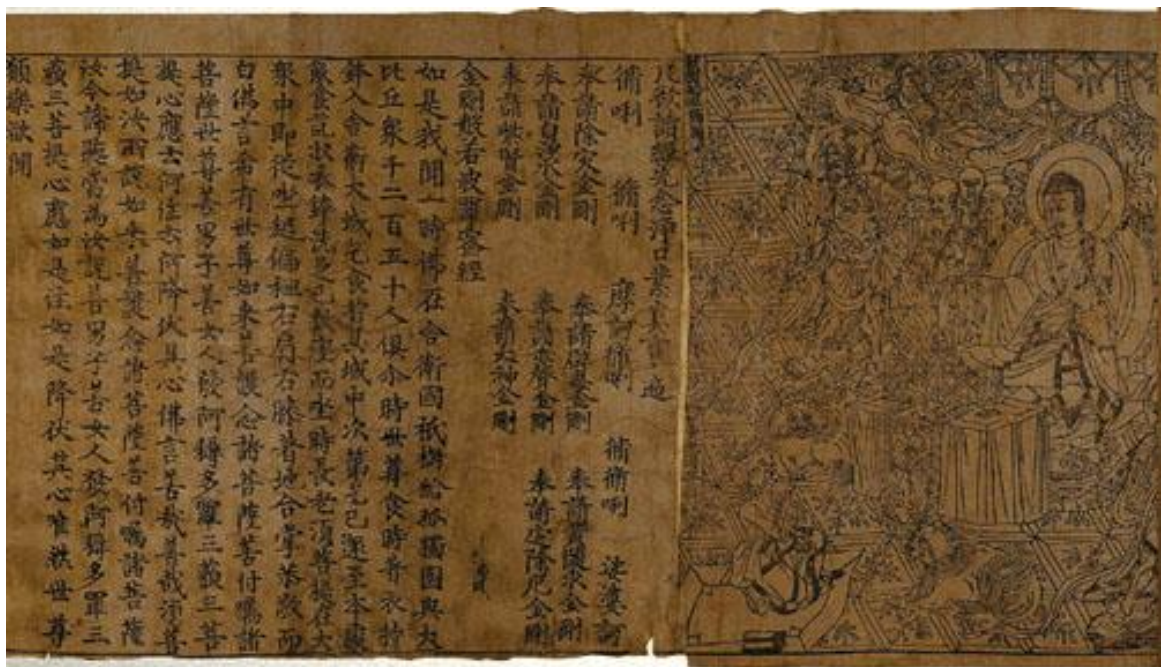 凡欲讀經先念淨口業真言一遍
脩唎 脩唎 摩訶脩唎 脩脩唎 娑婆訶
奉請除灾金剛 奉請辟毒金剛 奉請黃隨求金剛
奉請白淨水金剛 奉請赤聲金剛 奉請定除厄金剛
奉請紫賢金剛 奉請大神金剛
金剛般若波羅蜜經
如是我聞一時佛在舍衛國祇樹給孤獨園與大
比丘衆千二百五十人俱尒時世尊食時著衣持
鉢入舍衛大城乞食於其城中次第乞已還至本處
飯食訖收衣鉢洗足已敷座而坐時長老須菩提在大
衆中即從坐起偏袒右肩右膝著地合掌恭敬而
白佛言希有世尊如來善護念諸菩薩善付囑諸
菩薩世尊善男子善女人發阿耨多羅三藐三菩
提心應云何住云何降伏其心佛言善哉善哉須菩
提如汝所說如來善護念諸菩薩善付囑諸菩薩
汝今諦聽當為汝說善男子善女人發阿耨多羅三
藐三菩提心應如是住如是降伏其心唯然世尊
願樂欲聞